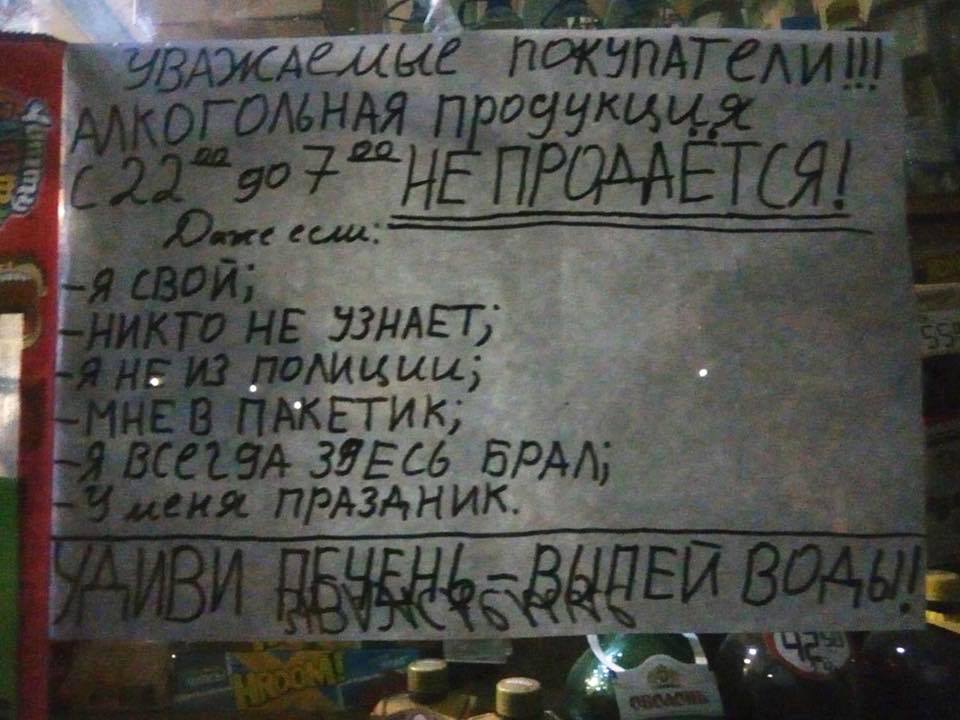 УВАЖАЕМЫЕ ПОКУПАТЕЛИ!!!
АЛКОГОЛЬНАЯ ПРОДУКЦИЯ
С 22⁰⁰ ДО 7⁰⁰ НЕ ПРОДАЁТСЯ!
Даже если:
-Я СВОЙ;
-НИКТО НЕ УЗНАЕТ;
-Я НЕ ИЗ ПОЛИЦИИ;
-МНЕ В ПАКЕТИК;
-Я ВСЕГДА ЗДЕСЬ БРАЛ;
-У МЕНЯ ПРАЗДНИК.
УДИВИ ПЕЧЕНЬ-ВЫПЕЙ ВОДЫ!
HROOM!
ОБОЛОНЬ
42